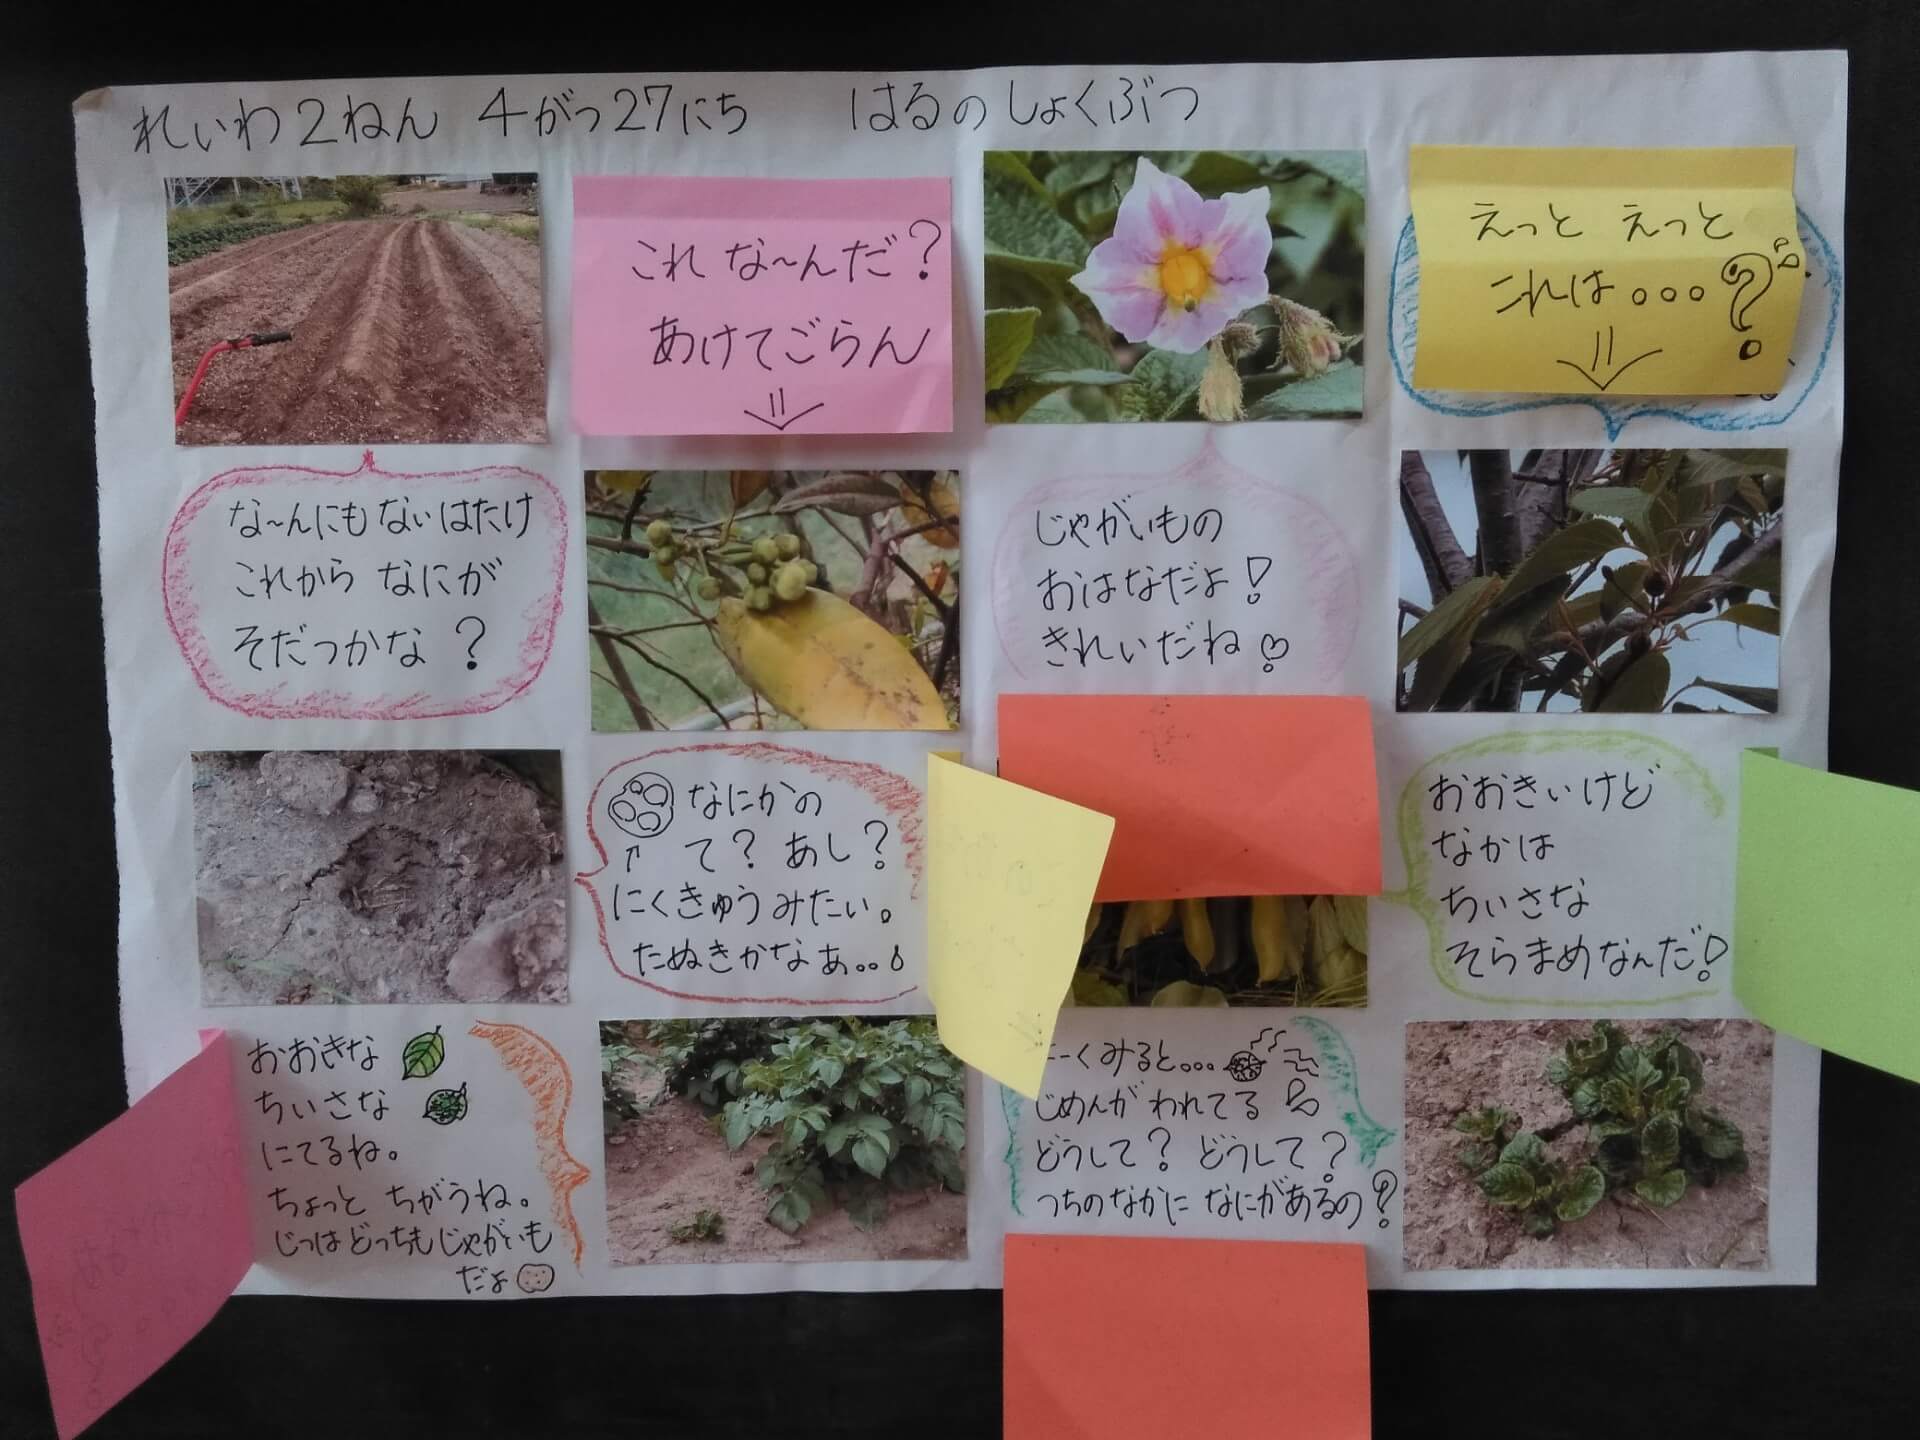 れいわ2ねん 4がつ27にち はるのしょくぶつ
これ な〜んだ?
あけてごらん
えっと えっと
これは。。。?
な〜んにもないはたけ
これから なにが
そだつかな?
じゃがいもの
おはなだよ!
きれいだね
なにかの
て? あし?
にくきゅうみたい。
たぬきかなあ。。
おおきいけど
なかは
ちいさな
そらまめなんだ!
おおきな
ちいさな
にてるね。
ちょっと ちがうね。
じつはどっちもじゃがいも
だよ
くみると。。。
じめんが われてる
どうして? どうして?
つちのなかに なにがあるの?